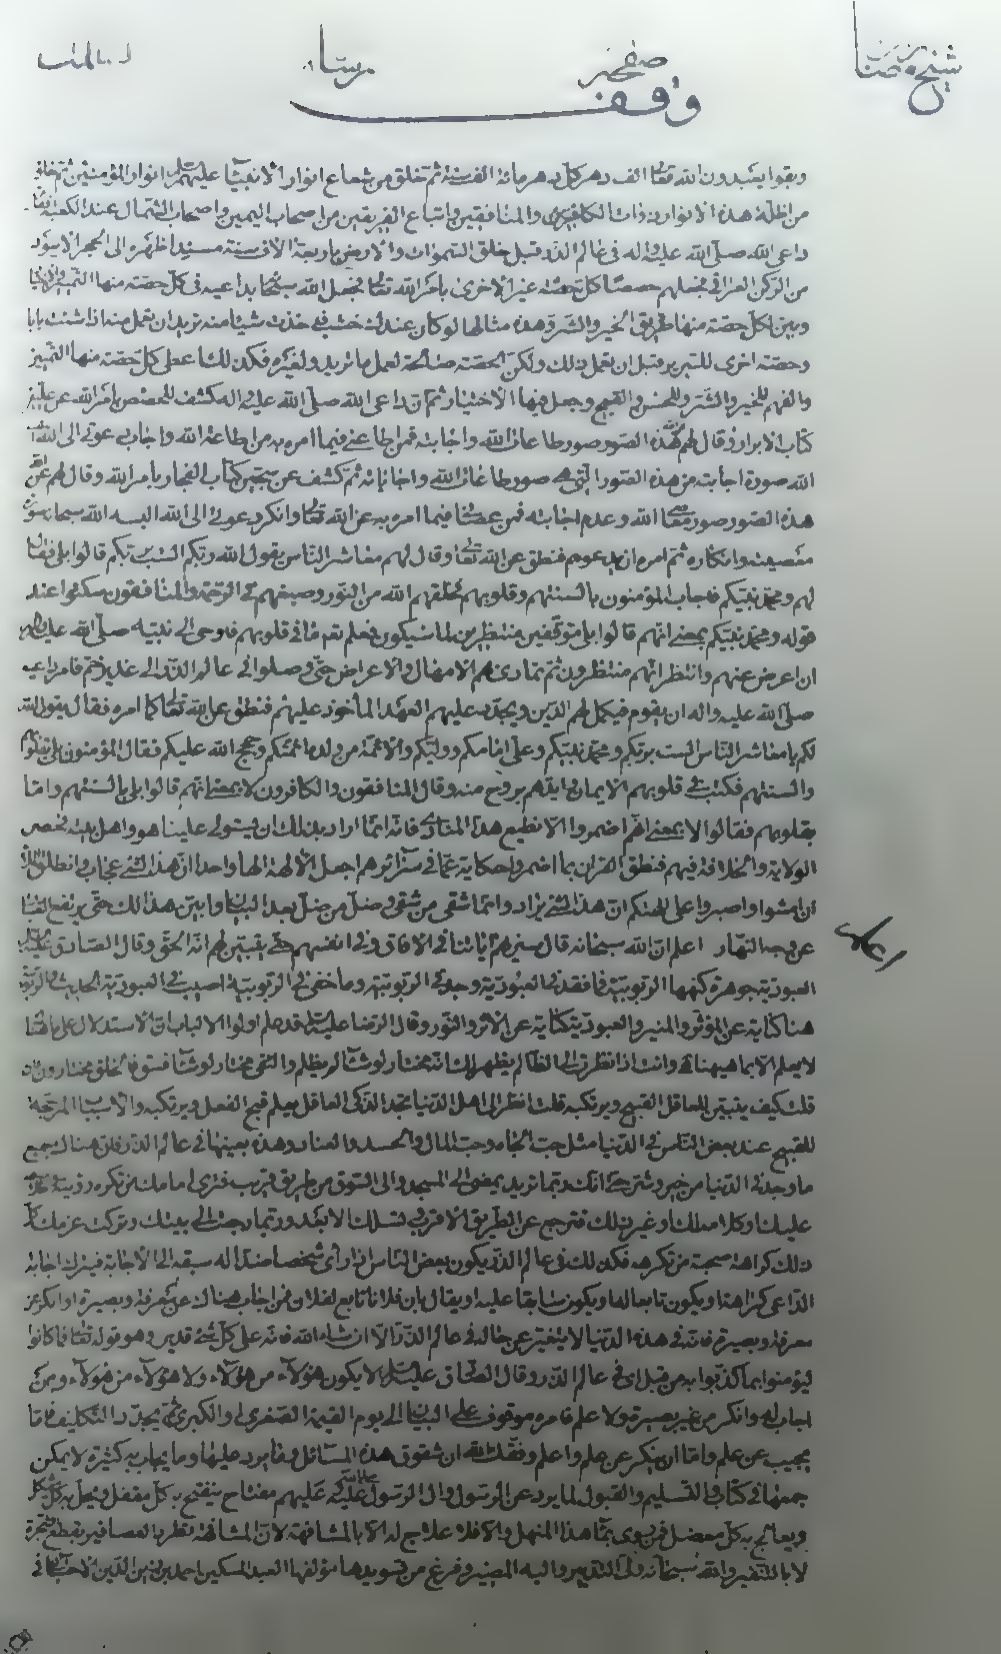 وقف
وبقوا يعبدون الله تعالى الف دهر كل دهر مائة الف سنة ثم خلق من شعاع انوار الانبياء عليهم انوار المؤمنين ثم خلق
من اظلة هذه الانوار ذوات الكافرين والمنافقين واتباع الفريقين من اصحاب اليمين واصحاب الشمال عند الكعبة
داعي الله صلى الله عليه واله في عالم الذر قبل خلق السموات والارض باربعة الاف سنة مسندا ظهره الى الحجر الاسود
من الركن العراقي فجعلهم حصصا كل حصة غير الاخرى بامر الله تعالى فجعل الله سبحانه بداعيه في كل حصة منها التمييز
وبين لكل حصة منها طريق الخير والشر وهذه مثالها لو كان عندك خشب فخذت شيئا منه تريد ان تعمل منه اذا شئت بابا
وحصة اخرى للسرير قبل ان تعمل ذلك ولكن الحصة صالحة لعمل ما تريد ولغيره فكذلك اعطى كل حصة منها التمييز
والفهم للخير والشر وللحسن والقبيح وجعل فيها الاختيار ثم ان داعي الله صلى الله عليه واله كشف للحصص بامر الله عن عليين
كتاب الابرار وقال لهم هذه الصور صور طاعات الله واجابته فمن اطاعني فيما امره به من اطاعة الله واجاب دعوتي الى الله
الله صورة اجابته من هذه الصور التي هي صور طاعات الله واجاباته ثم كشف عن سجين كتاب الفجار بامر الله وقال لهم عن
هذه الصور صور معاصي الله وعدم اجابته فمن عصاني فيما امره به عن الله تعالى وانكر دعوتي الى الله البسه الله سبحانه
معصيته وانكاره ثم امره ان يدعوهم فنطق عن الله تعالى وقال لهم معاشر الناس يقول الله ربكم الست بربكم قالوا بلى فقال
لهم ومحمد نبيكم فاجاب المؤمنون بالسنتهم وقلوبهم فخلقهم الله من النور وصبغهم في الرحمة والمنافقون سكتوا عند
قوله ومحمد نبيكم يعني انهم قالوا بلى متوقفين منتظرين لما سيكون فعلم تعالى ما في قلوبهم فاوحى الى نبيه صلى الله عليه واله
ان اعرض عنهم وانتظر انهم منتظرون ثم تمادى بهم الامهال والاعراض حتى وصلوا الى عالم الذر الى غدير خم فامر داعيه
صلى الله عليه واله ان يقوم فيكمل لهم الدين ويجدد عليهم العهد المأخوذ عليهم فنطق عن الله تعالى كما امره فقال يقول الله
لكم يا معاشر الناس الست بربكم ومحمد نبيكم وعلي امامكم ووليكم والائمة من ولده ائمتكم وحجج الله عليكم فقال المؤمنون بلى بقلوبهم
والسنتهم فكتب في قلوبهم الايمان وايدهم بروح منه وقال المنافقون والكافرون لا يعني انهم قالوا بلى بالسنتهم واما
بقلوبهم فقالوا لا يعني انهم اضمروا الا نطيع هذا المنادي فانه انما اراد بذلك ان يستولي علينا هو واهل بيته فحصر
الولاية والخلافة فيهم فنطق القران بما اضمروا حكاية عما في سرائرهم اجعل الالهة الها واحدا ان هذا لشيء عجاب وانطلق الملأ
ان امشوا واصبروا على الهتكم ان هذا لشيء يراد وانما شقي من شقي وضل من ضل بعد البيان وابين هذا لك حتى يرتفع الغبار
عن وجه النهار اعلم ان الله سبحانه قال سنريهم اياتنا في الافاق وفي انفسهم حتى يتبين لهم انه الحق وقال الصادق عليه السلام
العبودية جوهرة كنهها الربوبية فما فقد في العبودية وجد في الربوبية وما خفي في الربوبية اصيب في العبودية الحديث والربوبية
هنا كناية عن المؤثر والمنير والعبودية كناية عن الاثر والنور وقال الرضا عليه السلام قد علم اولوا الالباب ان الاستدلال على ما هناك
لا يعلم الا بما هيهنا وانت اذا نظرت الى الظالم يظهر لك انه مختار لو شاء لم يظلم والتقي مختار لو شاء فسق فالخلق مختارون
قلت كيف يتبين للعاقل القبيح ويرتكبه قلت انظر الى اهل الدنيا تجد الذكي العاقل يعلم قبح الفعل ويرتكبه والاسباب المرجحة
للقبيح عند بعض الناس في الدنيا مثل حب الجاه وحب المال والحسد والعناد وهذه بعينها في عالم الذر فان هناك جميع
ما وجد في الدنيا من خير وشر حتى انك ربما تريد تمضي الى المسجد والى السوق من طريق قريب فترى امامك من تكره رؤيته
عليك وكلامه لك وغير ذلك فترجع عن الطريق الاقرب فتسلك الابعد وربما رجعت الى بيتك وتركت عزمك
ذلك كراهة صحبة من تكرهه فكذلك في عالم الذر يكون بعض الناس اذا رأى شخصا ضدا له سبقه الى الاجابة فيترك اجابة
الداعي كراهة ان يكون تابعا لها ويكون سابقا عليه او يقال بان فلانا تابع لفلان فمن اجاب هناك عن معرفة وبصيرة او انكر عن
معرفة وبصيرة فانه في هذه الدنيا لا يتغير عن حاله في عالم الذر الا ان شاء الله فانه على كل شيء قدير وهو قوله تعالى فما كانوا
ليؤمنوا بما كذبوا به من قبل اي في عالم الذر وقال الصادق عليه السلام لا يكون هؤلاء من هؤلاء ولا هؤلاء من هؤلاء ومن
اجاب او انكر من غير بصيرة ولا علم فامره موقوف على البيان الى يوم القيمة الصغرى او الكبرى ثم يجدد التكليف فاما
يجيب عن علم واما ان ينكر عن علم واعلم وفقك الله ان شقوق هذه المسائل وما يرد عليها وما يجاب به كثيرة لا يمكن
جمعها في كتاب والتسليم والقبول لما يرد عن الرسول وال الرسول صلى الله عليه وعليهم مفتاح ينفتح به كل مقفل وينحل به كل مشكل
ويعالج به كل معضل فمن روى بماء هذا المنهل والا فلا علاج له الا بالمشافهة لان المشافهة تطرد العصافير بقطع الشجرة
لا بالتنفير والله سبحانه ولي التقدير واليه المصير وفرغ من تسويدها مؤلفها العبد المسكين احمد بن زين الدين الاحسائي